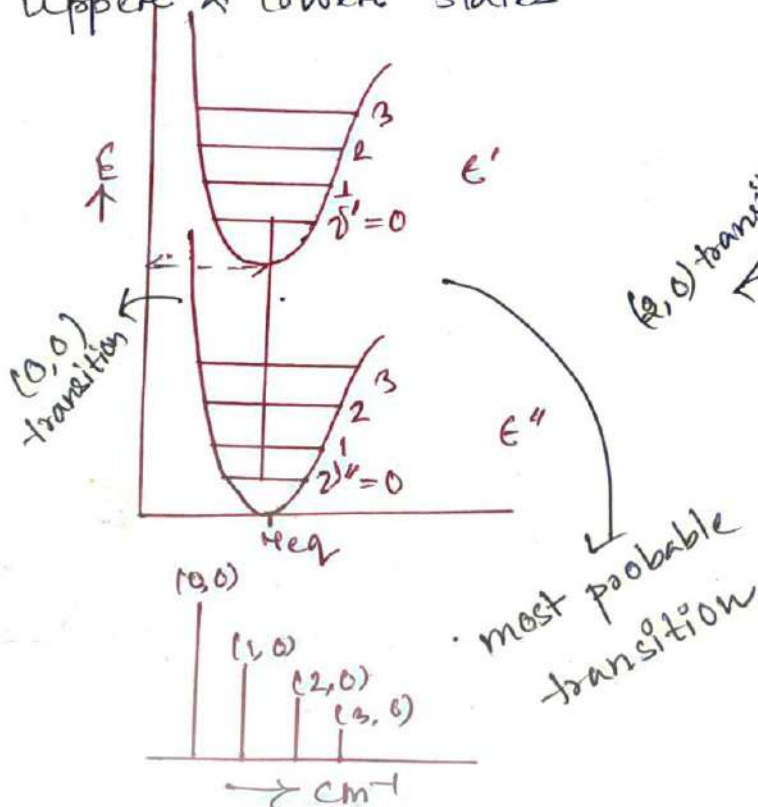 Upper & lower states
E
3
2
1
v' = 0
ϵ'
(2,0) transi
(0,0)
transition
3
2
1
v" = 0
ϵ"
req
most probable
transition
(0,0)
(1,0)
(2,0)
(3,0)
cm⁻¹